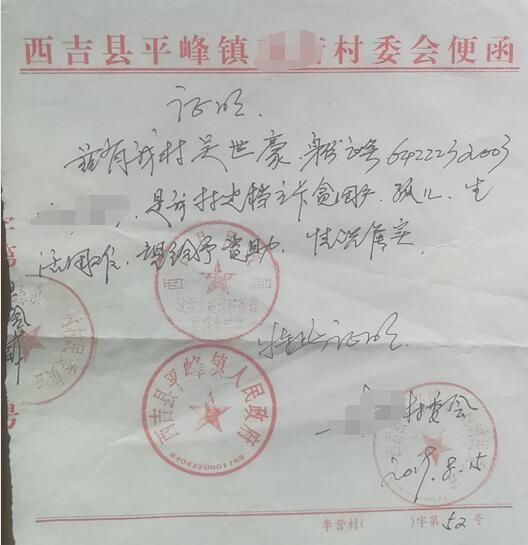 西吉县平峰镇 村委会便函
证明.
兹有我村吴世豪,身份证号6422232003
,是我村建档立卡贫困户,孤儿,生
活困难,望给予资助,情况属实.
特此证明.
西吉县平峰镇人民政府
6404220001769
村民委员会
村委会
2019.8.15
李营村( )字第52号